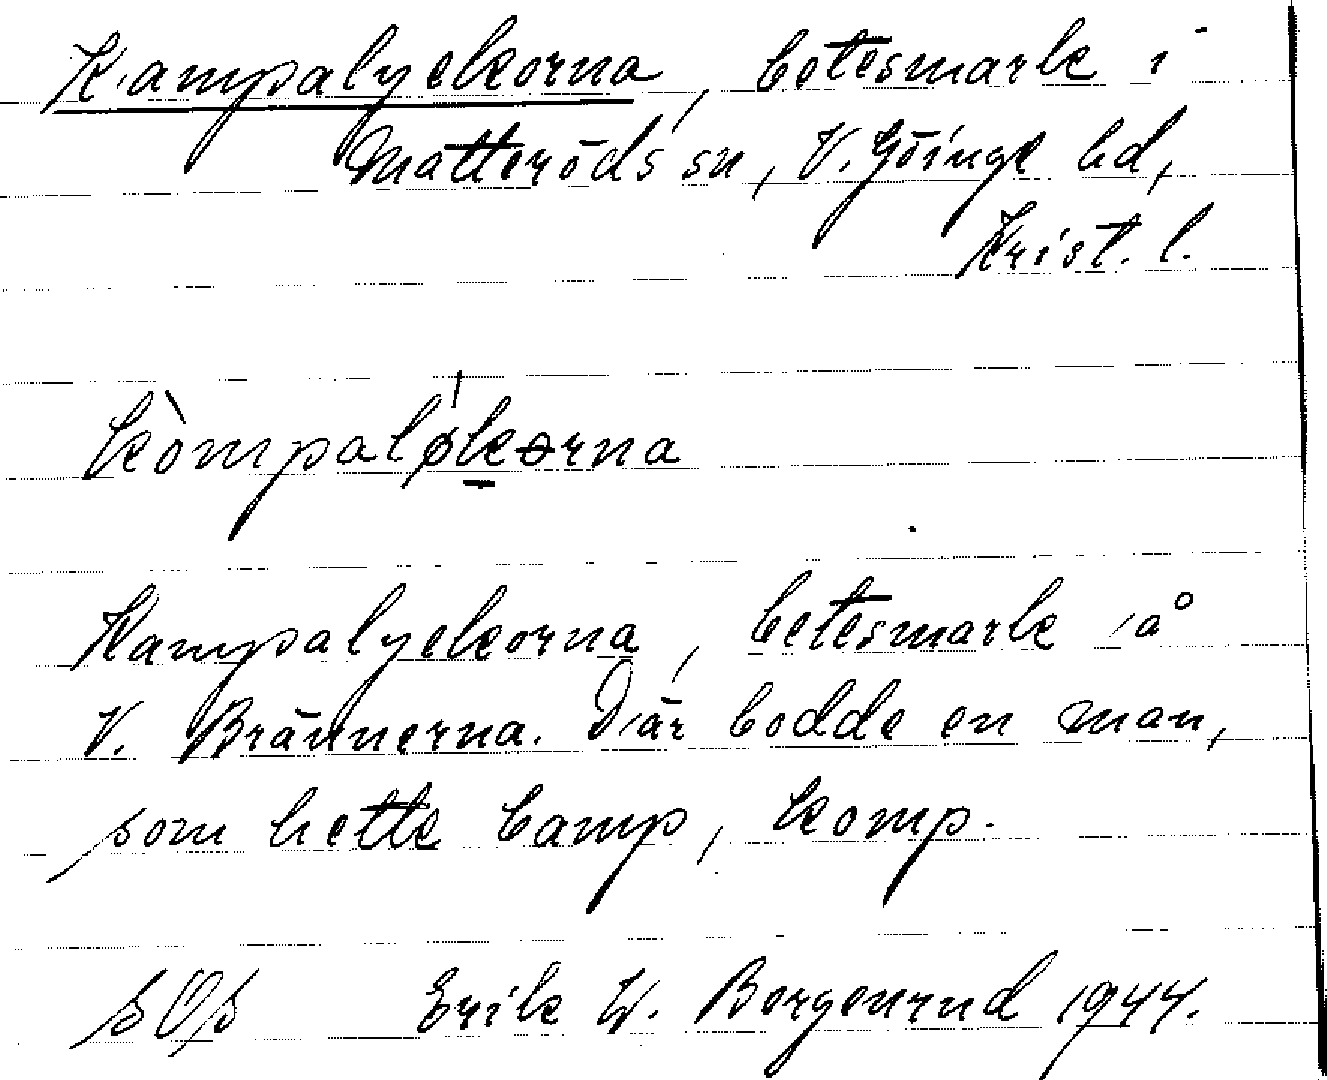 Kampalyekorna, betesmark i
Matteröds sn, V. Göinge hd,
Krist. l.
kòmpaløkɵrna
Kampalyekorna, betesmark å
V. Brännerna. Där bodde en man,
som hette Camp, komp.
SOS Erik W. Borgenrud 1944.